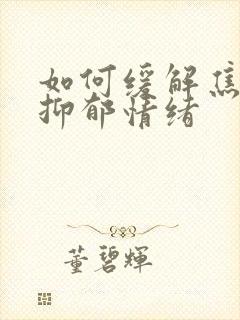 如何缓解焦
抑郁情绪
董碧辉